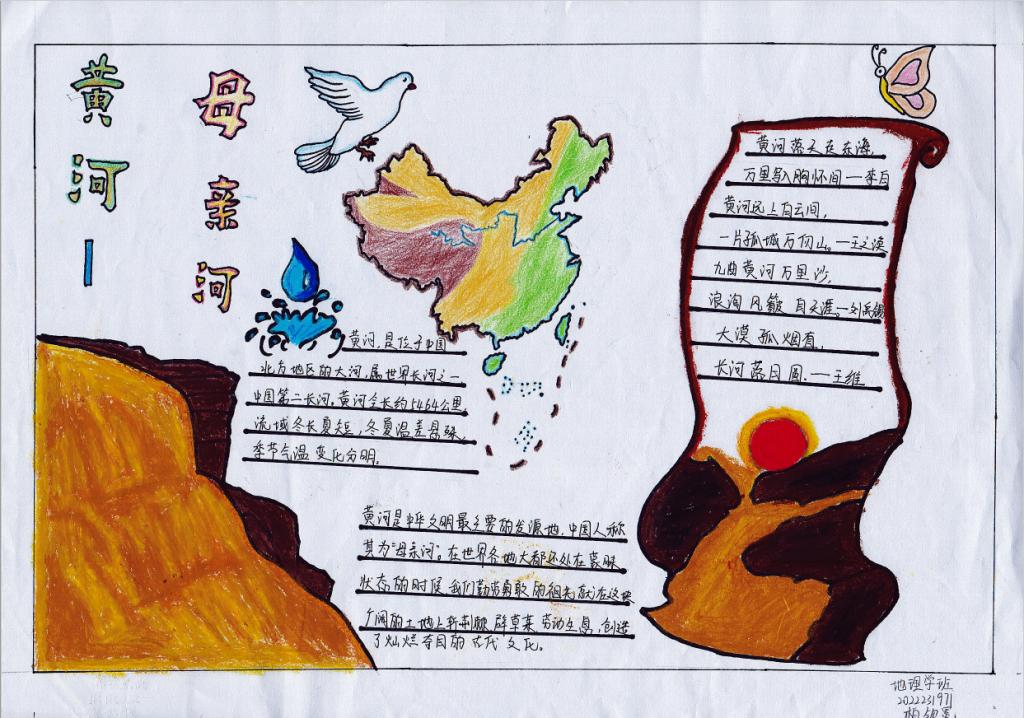 黄河—
母亲河
黄河,是位于中国
北方地区的大河,属世界长河之一
中国第二长河,黄河全长约5464公里
流域冬长夏短,冬夏温差悬殊,
季节气温变化分明。
黄河是中华文明最主要的发源地,中国人称
其为“母亲河”。在世界各地大都还处在蒙昧
状态的时候,我们勤劳勇敢的祖先就在这块
广阔的土地上斩荆棘,辟草莱,劳动生息,创造
了灿烂夺目的古代文化。
黄河落天走东海,
万里写入胸怀间—李白
黄河远上白云间,
一片孤城万仞山。—王之涣
九曲黄河万里沙,
浪淘风簸自天涯.—刘禹锡
大漠孤烟直,
长河落日圆.—王维
地理学班
2022231971